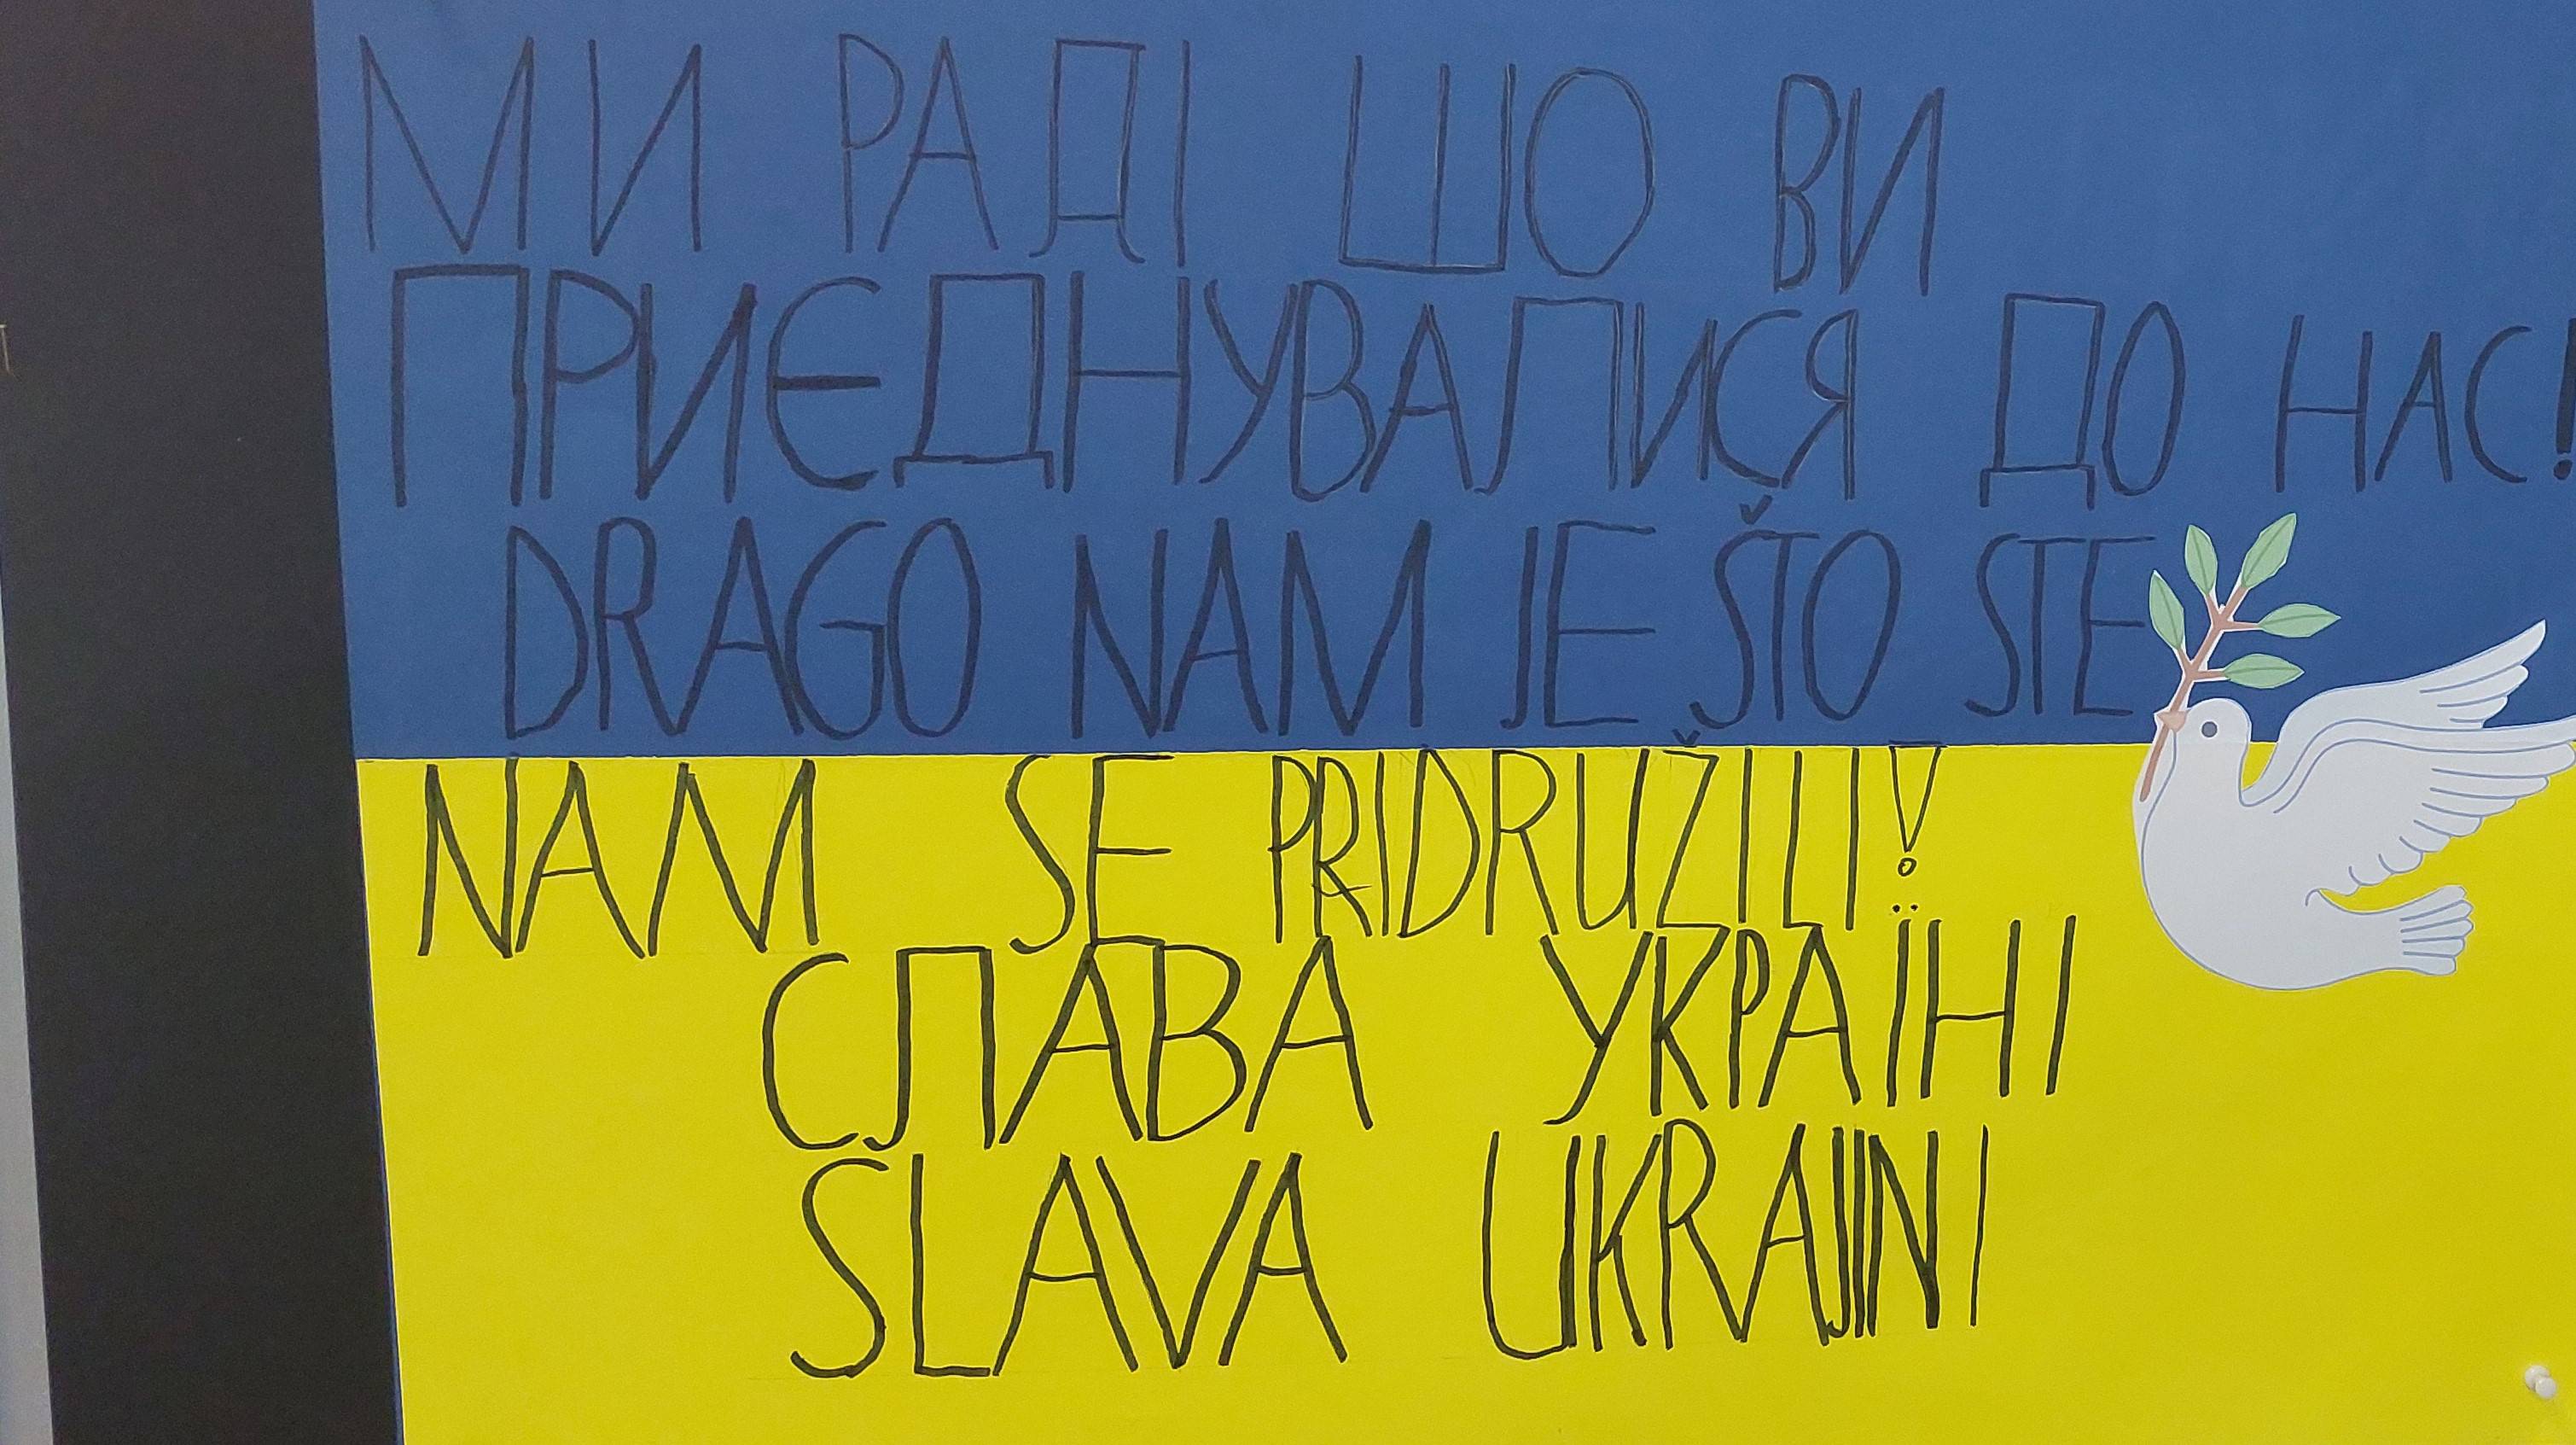 МИ РАДІ ШО ВИ
ПРИЄДНУВАЛИСЯ ДО НАС!
DRAGO NAM JE ŠTO STE
NAM SE PRIDRUŽILI!
СЛАВА УКРАЇНІ
SLAVA UKRAJINI